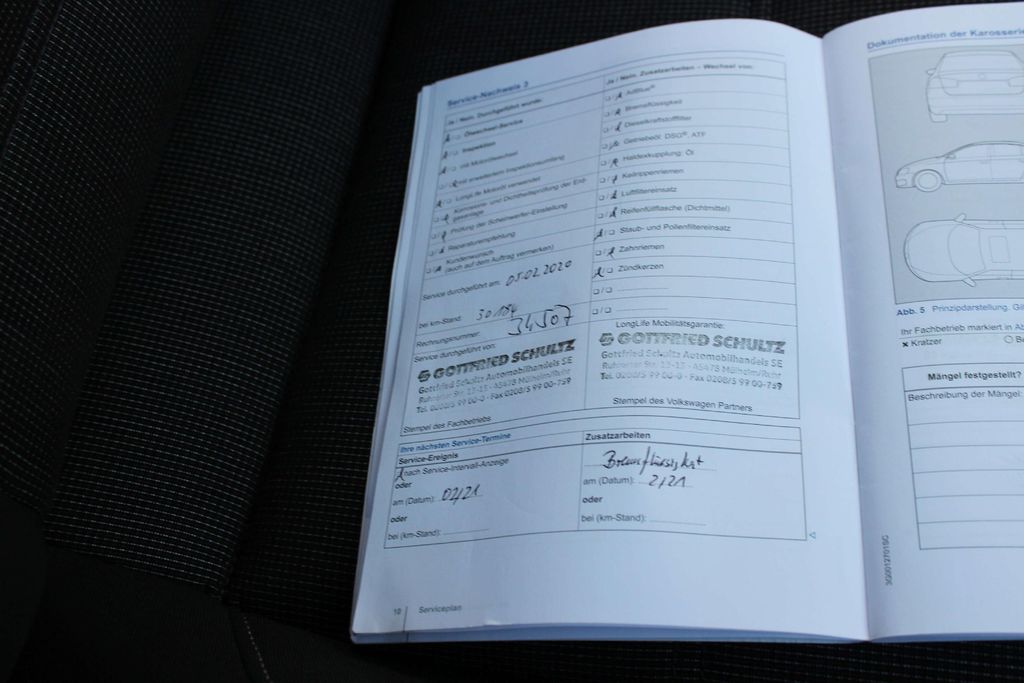 Service-Nachweis 3
Ja / Nein, Durchgeführt wurde:
Ölwechsel-Service
Inspektion
mit Motorölwechsel
mit erweitertem Inspektionsumfang
LongLife Motoröl verwendet
Karosserie- und Dichtheitsprüfung der Erd-
gasanlage
Prüfung der Scheinwerfer-Einstellung
Reparaturempfehlung
Kundenwunsch
(auch auf dem Auftrag vermerken)
Service durchgeführt am: 05.02.2020
bei km-Stand: 30184
Rechnungsnummer: 34507
Service durchgeführt von:
GOTTFRIED SCHULTZ
Gottfried Schultz Automobilhandels SE
Ruhrorter Str. 13-15 - 45478 Mülheim/Ruhr
Tel. 0208/5 99 00-0 - Fax 0208/5 99 00-759
Stempel des Fachbetriebs
Ja / Nein, Zusatzarbeiten – Wechsel von:
AdBlue®
Bremsflüssigkeit
Dieselkraftstofffilter
Getriebeöl: DSG®, ATF
Haldexkupplung: Öl
Keilrippenriemen
Luftfiltereinsatz
Reifenfüllflasche (Dichtmittel)
Staub- und Pollenfiltereinsatz
Zahnriemen
Zündkerzen
LongLife Mobilitätsgarantie:
GOTTFRIED SCHULTZ
Gottfried Schultz Automobilhandels SE
Ruhrorter Str. 13-15 - 45478 Mülheim/Ruhr
Tel. 0208/5 99 00-0 - Fax 0208/5 99 00-759
Stempel des Volkswagen Partners
Ihre nächsten Service-Termine
Service-Ereignis
nach Service-Intervall-Anzeige
oder
am (Datum): 02/21
oder
bei (km-Stand):
Zusatzarbeiten
Bremsflüssigkeit
am (Datum): 2/21
oder
bei (km-Stand):
10 Serviceplan
Dokumentation der Karosserie
Abb. 5 Prinzipdarstellung.
Ihr Fachbetrieb markiert in
x Kratzer
Mängel festgestellt?
Beschreibung der Mängel:
3G0012701SC